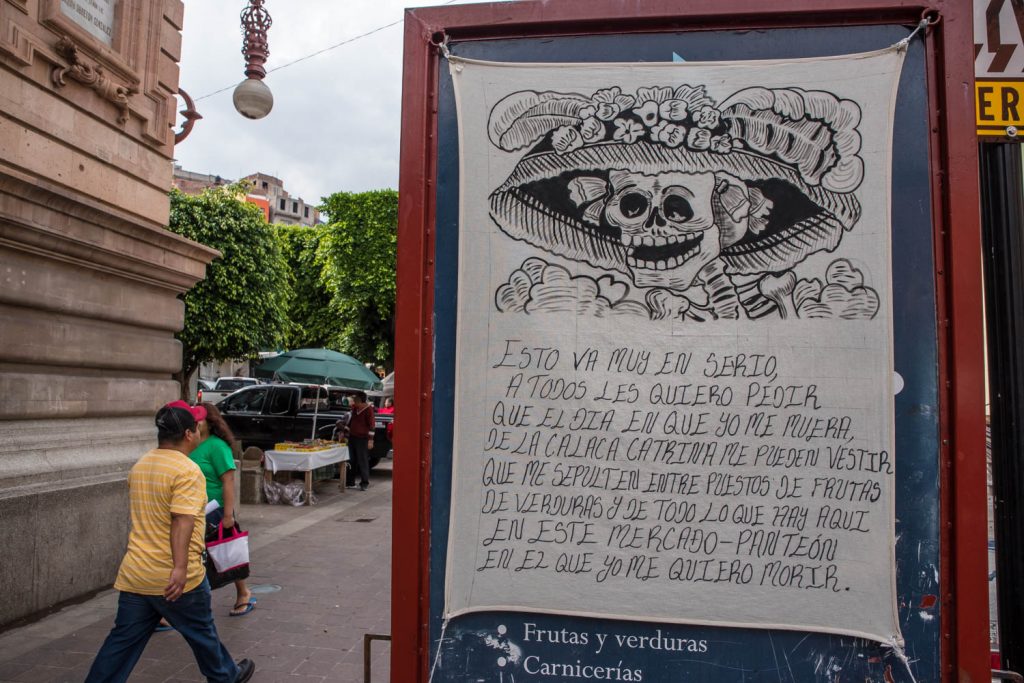 ER
ESTO VA MUY EN SERIO,
A TODOS LES QUIERO PEDIR
QUE EL DIA EN QUE YO ME MUERA,
DE LA CALACA CATRINA ME PUEDEN VESTIR
QUE ME SEPULTEN ENTRE PUESTOS DE FRUTAS
DE VERDURAS Y DE TODO LO QUE HAY AQUI
EN ESTE MERCADO-PANTEÓN
EN EL QUE YO ME QUIERO MORIR.
• Frutas y verduras
• Carnicerías